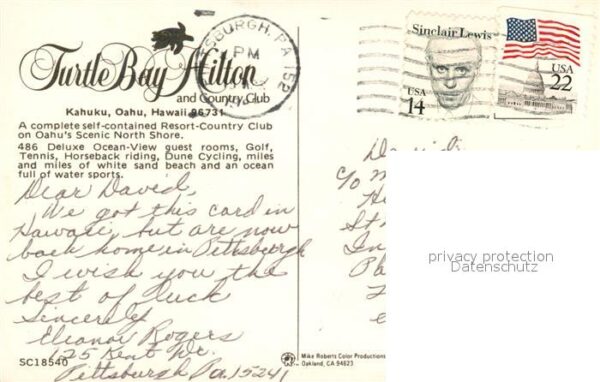 Turtle Bay Hilton
and Country Club
Kahuku, Oahu, Hawaii 96731
A complete self-contained Resort-Country Club
on Oahu's Scenic North Shore.
486 Deluxe Ocean-View guest rooms, Golf,
Tennis, Horseback riding, Dune Cycling, miles
and miles of white sand beach and an ocean
full of water sports.
Dear David,
We got this card in
Hawaii, but are now
back home in Pittsburgh
I wish you the
best of luck
Sincerely
Eleanor Rogers
125 Kent Dr.
Pittsburgh Pa. 15241
SC18540
SBURGH, PA 152
PM
Sinclair Lewis
USA
14
USA
22
c/o
privacy protection
Datenschutz
Mike Roberts Color Productions
Oakland, CA 94623